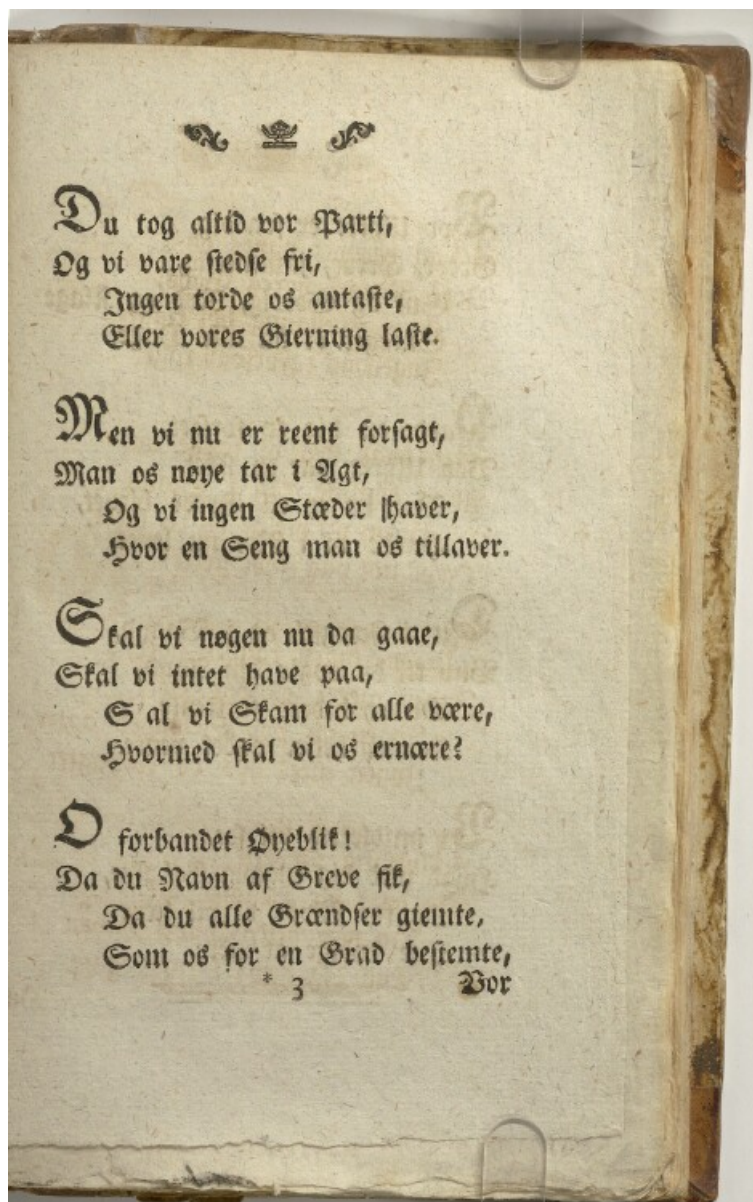 Du tog altid vor Parti,
Og vi vare stedse fri,
Ingen torde os antaste,
Eller vores Gierning laste.
Men vi nu er reent forsagt,
Man os nøye tar i Agt,
Og vi ingen Stæder haver,
Hvor en Seng man os tillaver.
Skal vi nøgen nu da gaae,
Skal vi intet have paa,
S al vi Skam for alle være,
Hvormed skal vi os ernære?
O forbandet Øyeblik!
Da du Navn af Greve fik,
Da du alle Grændser giemte,
Som os for en Grad bestemte,
* 3 Vor